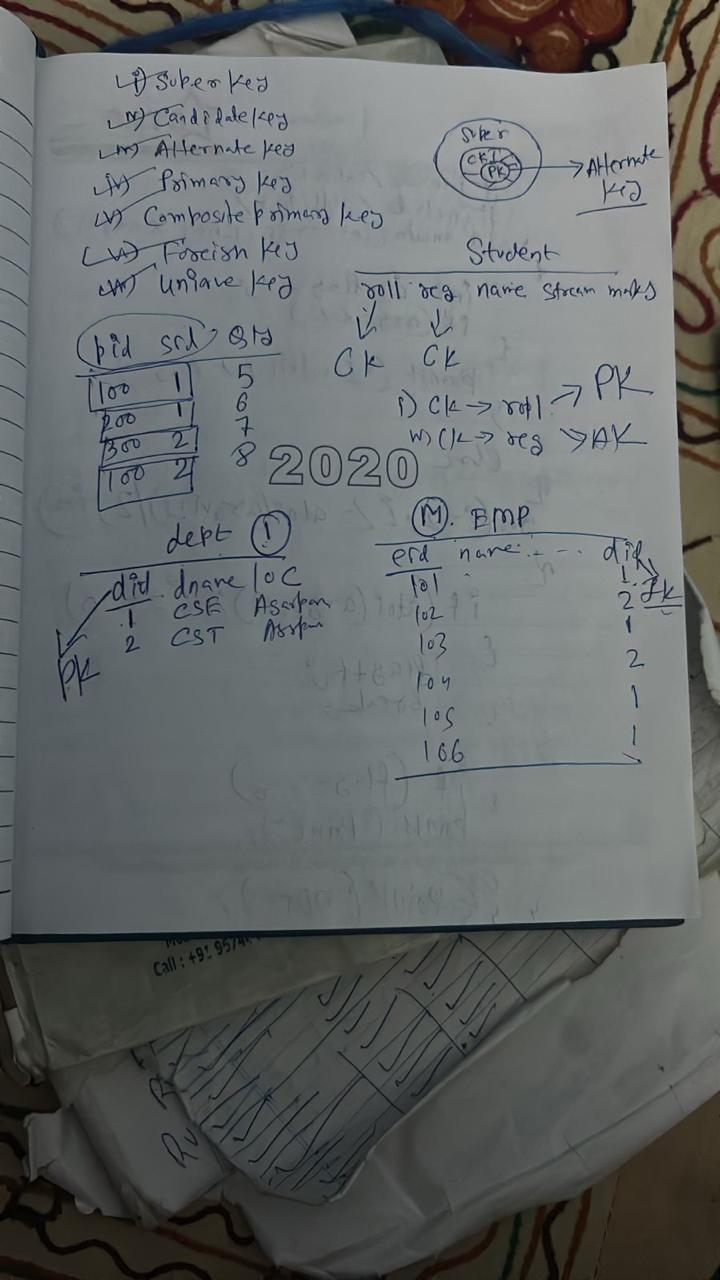 i) Super key
ii) Candidate key
iii) Alternate key
iv) Primary key
v) Composite primary key
vi) Foreign key
vii) Unique key
Super
CK
PK
Alternate
key
Student
roll reg name stream marks
CK CK
i) CK → roll → PK
ii) CK → reg → AK
pid sid Qty
100 1 5
200 1 6
300 2 7
100 2 8
2020
dept 1
did dname loc
1 CSE
2 CST
PK
M. EMP
eid name ... did
101 1
102 2
103 1
104 2
105 1
106 1
fk
Call : +91